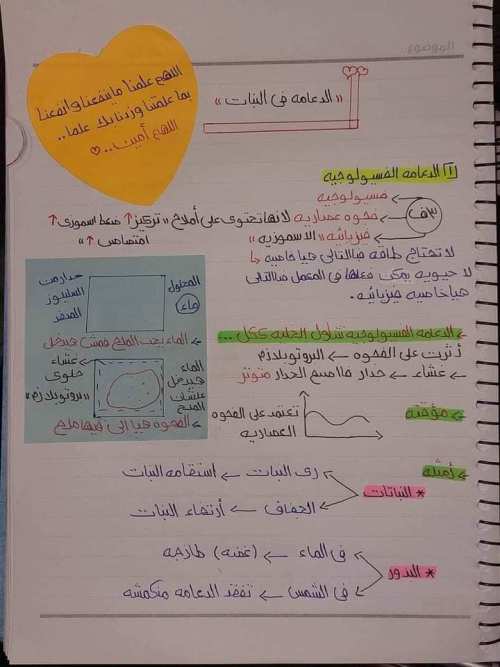 الموضوع
اللهم علمنا ما ينفعنا وانفعنا
بما علمتنا وزدنا بك علما..
اللهم أمين..
"الدعامه فى النبات"
1] الدعامه الفسيولوجيه
3 ف
فسيولوجيه
فجوه عصاريه لانها تحتوى على أملاح "تركيز ↑ ضغط اسموزى ↑
امتصاص ↑"
فيزيائيه "الاسموزيه"
لا تحتاج طاقه فبالتالى هيا خاصيه
لا حيويه يمكن فعلها فى المعمل فبالتالى
هيا خاصيه فيزيائيه.
المحلول
ماء
جدار من
السليلوز
المنفذ
← الماء يحب الملح فمش هيدخل
الماء
هيدخل
عشان
الملح
غشاء
خلوى
"بروتوبلازم"
← الفجوه هيا إلى فيها ملح
الدعامه الفسيولوجيه تتناول الخليه ككل ...
أثرت على الفجوه ← البروتوبلازم
← غشاء ← جدار فاصبح الجدار متوتر
← مؤقته
تعتمد على الفجوه
العصاريه
← أمثله
* النباتات
رى النبات ← استقامه النبات
الجفاف ← أرتخاء النبات
* البذور
فى الماء ← (غضه) طازجه
فى الشمس ← تفقد الدعامه منكمشه